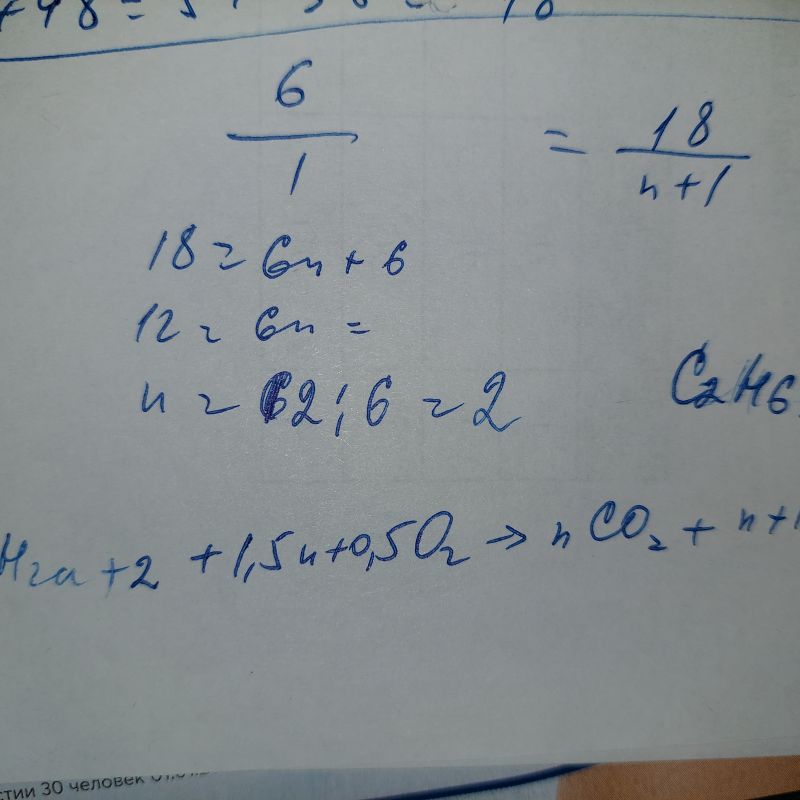 6/1 = 18/n+1
18 = 6n + 6
12 = 6n =
n = 12 : 6 = 2
C2H6
H2n+2 + 1,5n+0,5O2 → nCO2 + n+1
стии 30 человек